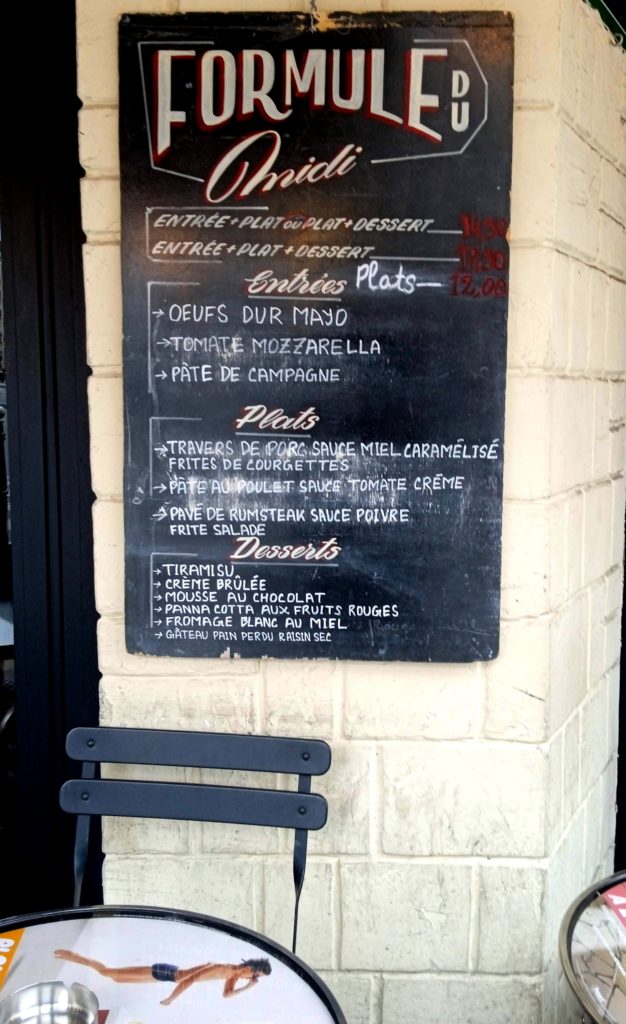 FORMULE DU
midi
ENTRÉE+PLAT OU PLAT+DESSERT 14,90
ENTRÉE+PLAT+DESSERT 17,90
Entrées Plats— 12,00
→ OEUFS DUR MAYO
→ TOMATE MOZZARELLA
→ PÂTE DE CAMPAGNE
Plats
→ TRAVERS DE PORC SAUCE MIEL CARAMÉLISÉ
FRITES DE COURGETTES
→ PÂTE AU POULET SAUCE TOMATE CRÉME
→ PAVÉ DE RUMSTEAK SAUCE POIVRE
FRITE SALADE
Desserts
→ TIRAMISU
→ CRÈME BRÛLÉE
→ MOUSSE AU CHOCOLAT
→ PANNA COTTA AUX FRUITS ROUGES
→ FROMAGE BLANC AU MIEL
→ GÂTEAU PAIN PERDU RAISIN SEC